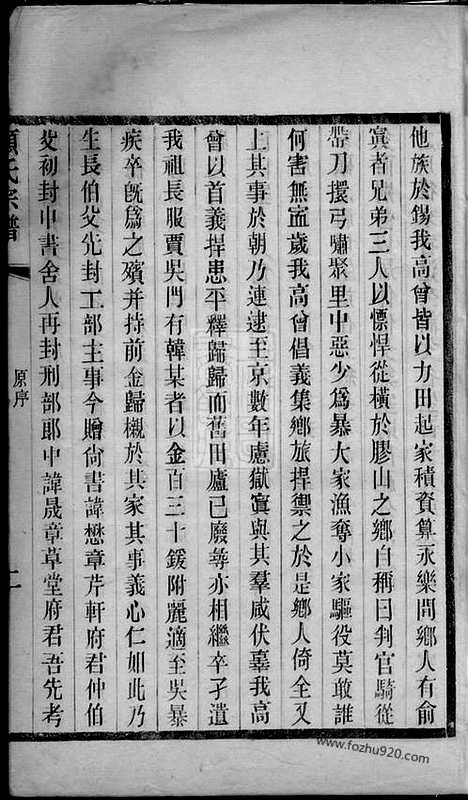 他族於錫我高曾皆以力田起家積貲算永樂間鄉人有俞
寘者兄弟三人以慓悍從橫於膠山之鄉自稱曰判官騎從
帶刀擐弓嘯聚里中惡少為暴大家漁奪小家驅役莫敢誰
何害無寍歲我高曾倡義集鄉旅捍禦之於是鄉人倚全又
上其事於朝乃連逮至京數年慮獄寘與其羣咸伏辜我高
曾以首義捍患平釋歸歸而舊田廬已廢等亦相繼卒孑遺
我祖長服賈吳門有韓某者以金百三十鍰附麗適至吳暴
疾卒旣為之殯并持前金歸櫬於其家其事義心仁如此乃
生長伯父先封工部主事今贈尙書諱懋章芹軒府君仲伯
父初封中書舍人再封刑部郎中諱晟章草堂府君吾先考
氏宗譜
原序
二
www.fozhu920.com